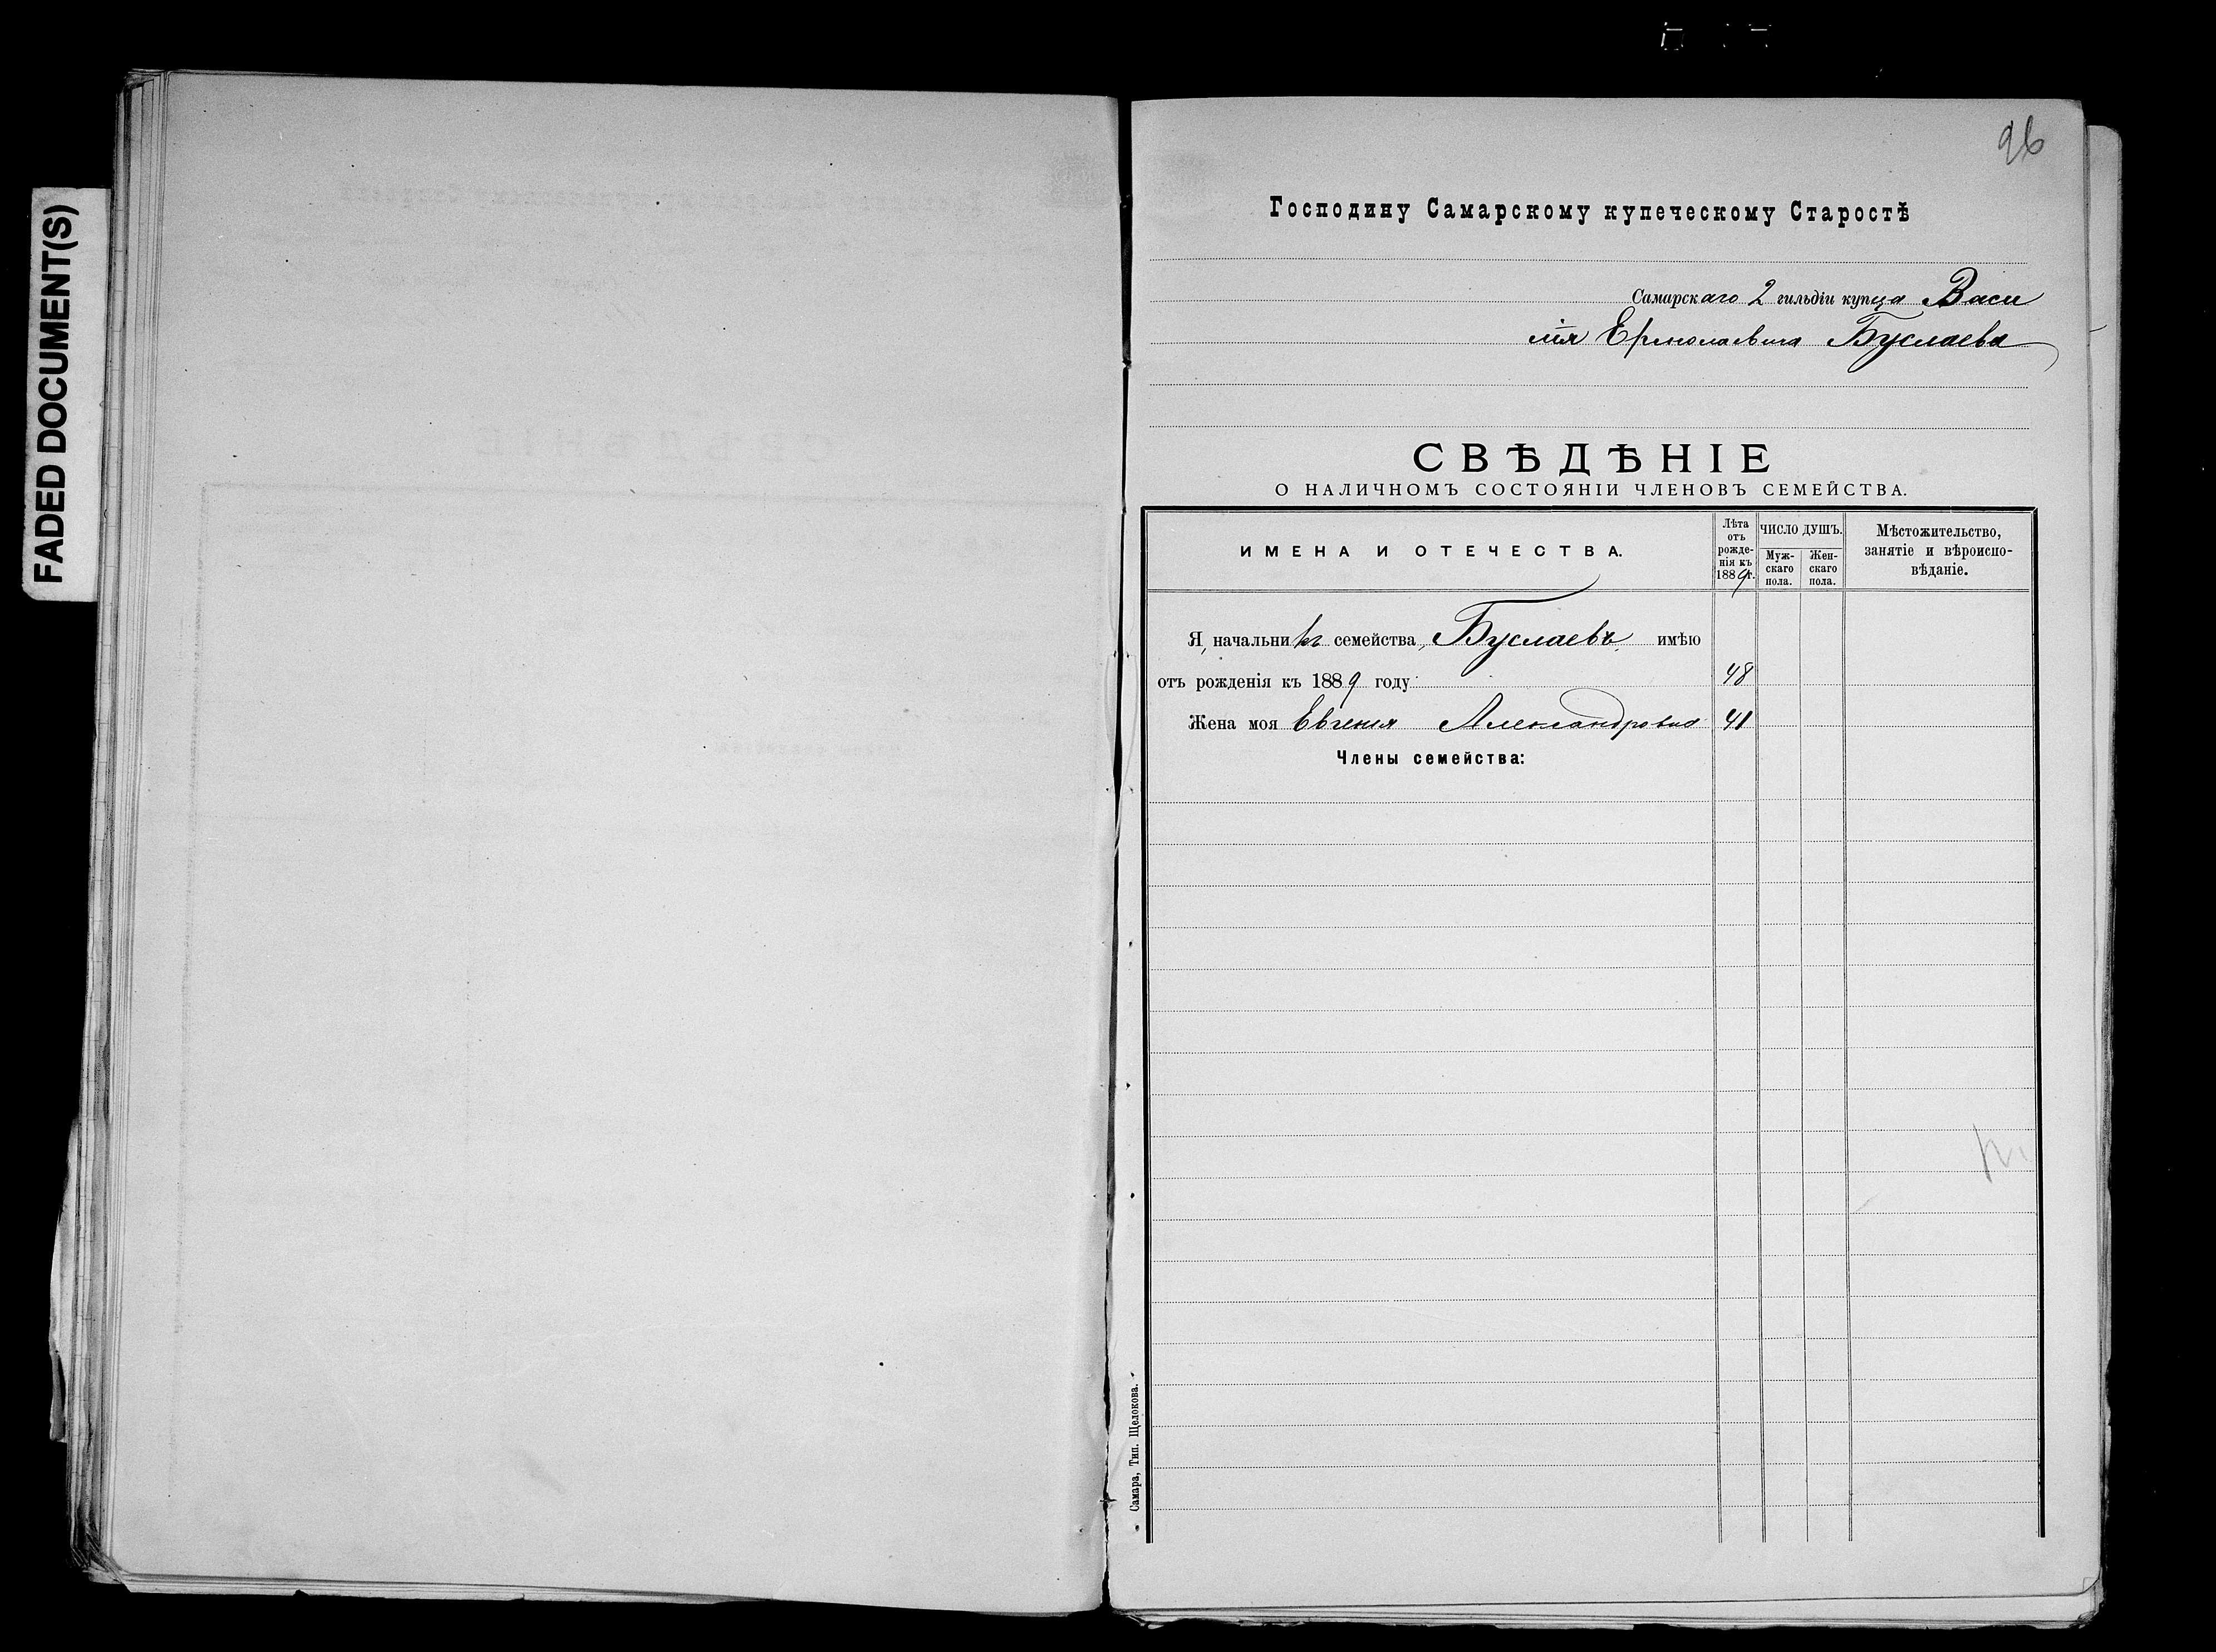 FADED DOCUMENT(S)
96
Господину Самарскому купеческому Старостѣ
Самарскаго 2 гильдіи купца Васи
лія Ермолаевича Буслаева
СВѢДѢНІЕ
О НАЛИЧНОМЪ СОСТОЯНІИ ЧЛЕНОВЪ СЕМЕЙСТВА.
ИМЕНА И ОТЕЧЕСТВА.
Лѣта
отъ
рожде-
нія къ
1889 г.
ЧИСЛО ДУШЪ.
Муж-
скаго
пола.
Жен-
скаго
пола.
Мѣстожительство,
занятіе и вѣроиспо-
вѣданіе.
Я, начальникъ семейства, Буслаевъ имѣю
отъ рожденія къ 1889 году 48
Жена моя Евгенія Александровна 41
Члены семейства:
Самара, Тип. Щелокова.